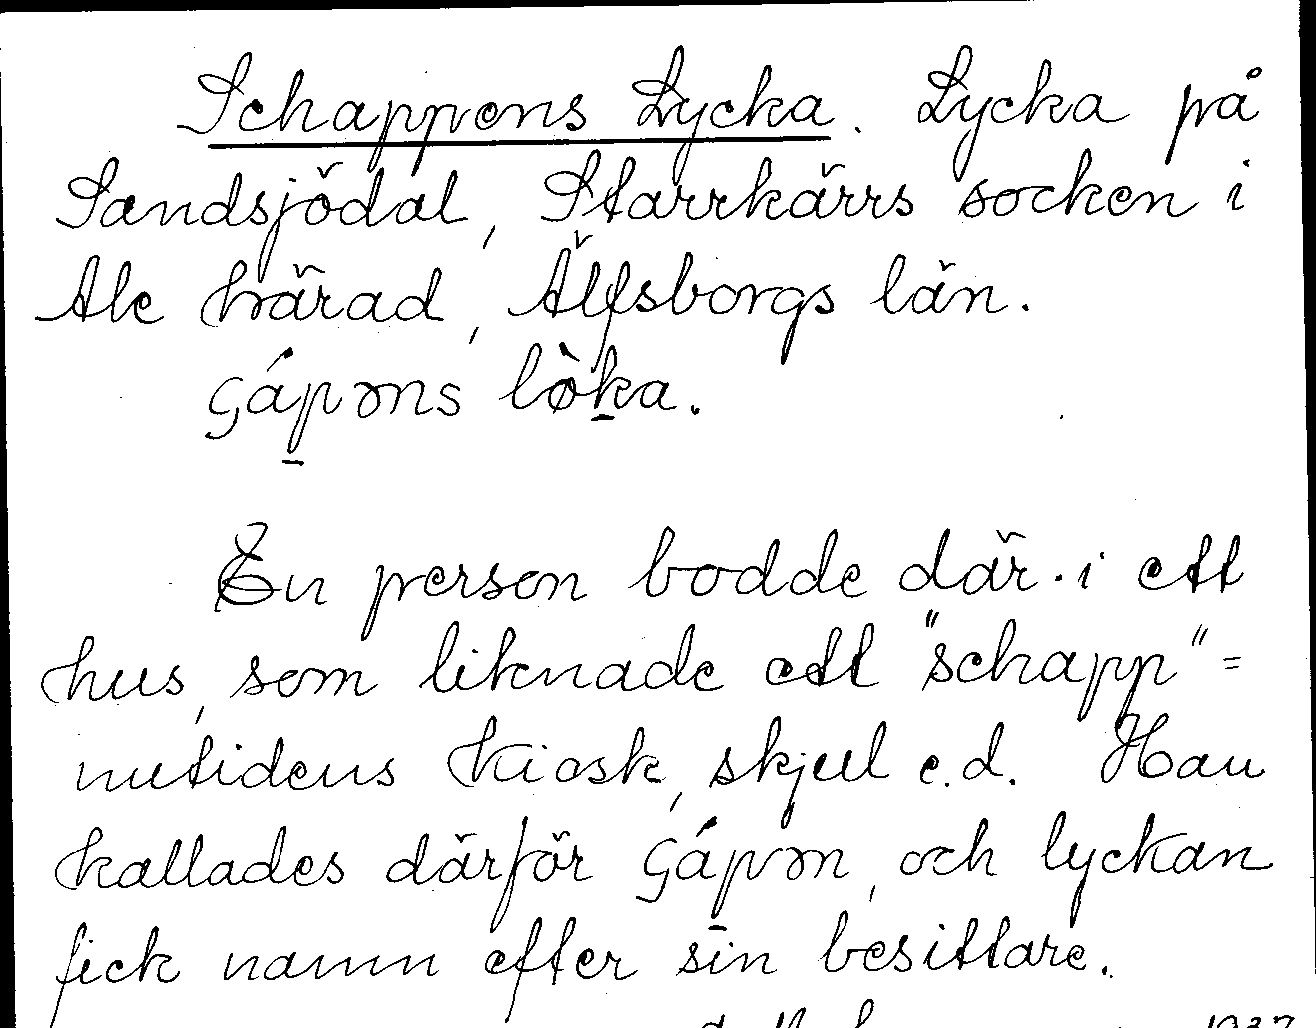 Schappens Lycka. Lycka på
Sandsjödal, Starrkärrs socken i
Ale härad, Älfsborgs län.
ʂáp̠əns lø̀k̠a.
En person bodde där i ett
hus, som liknade ett "schapp" =
nutidens kiosk, skjul e.d. Han
kallades därför ʂáp̠ən, och lyckan
fick namn efter sin besittare.
1937